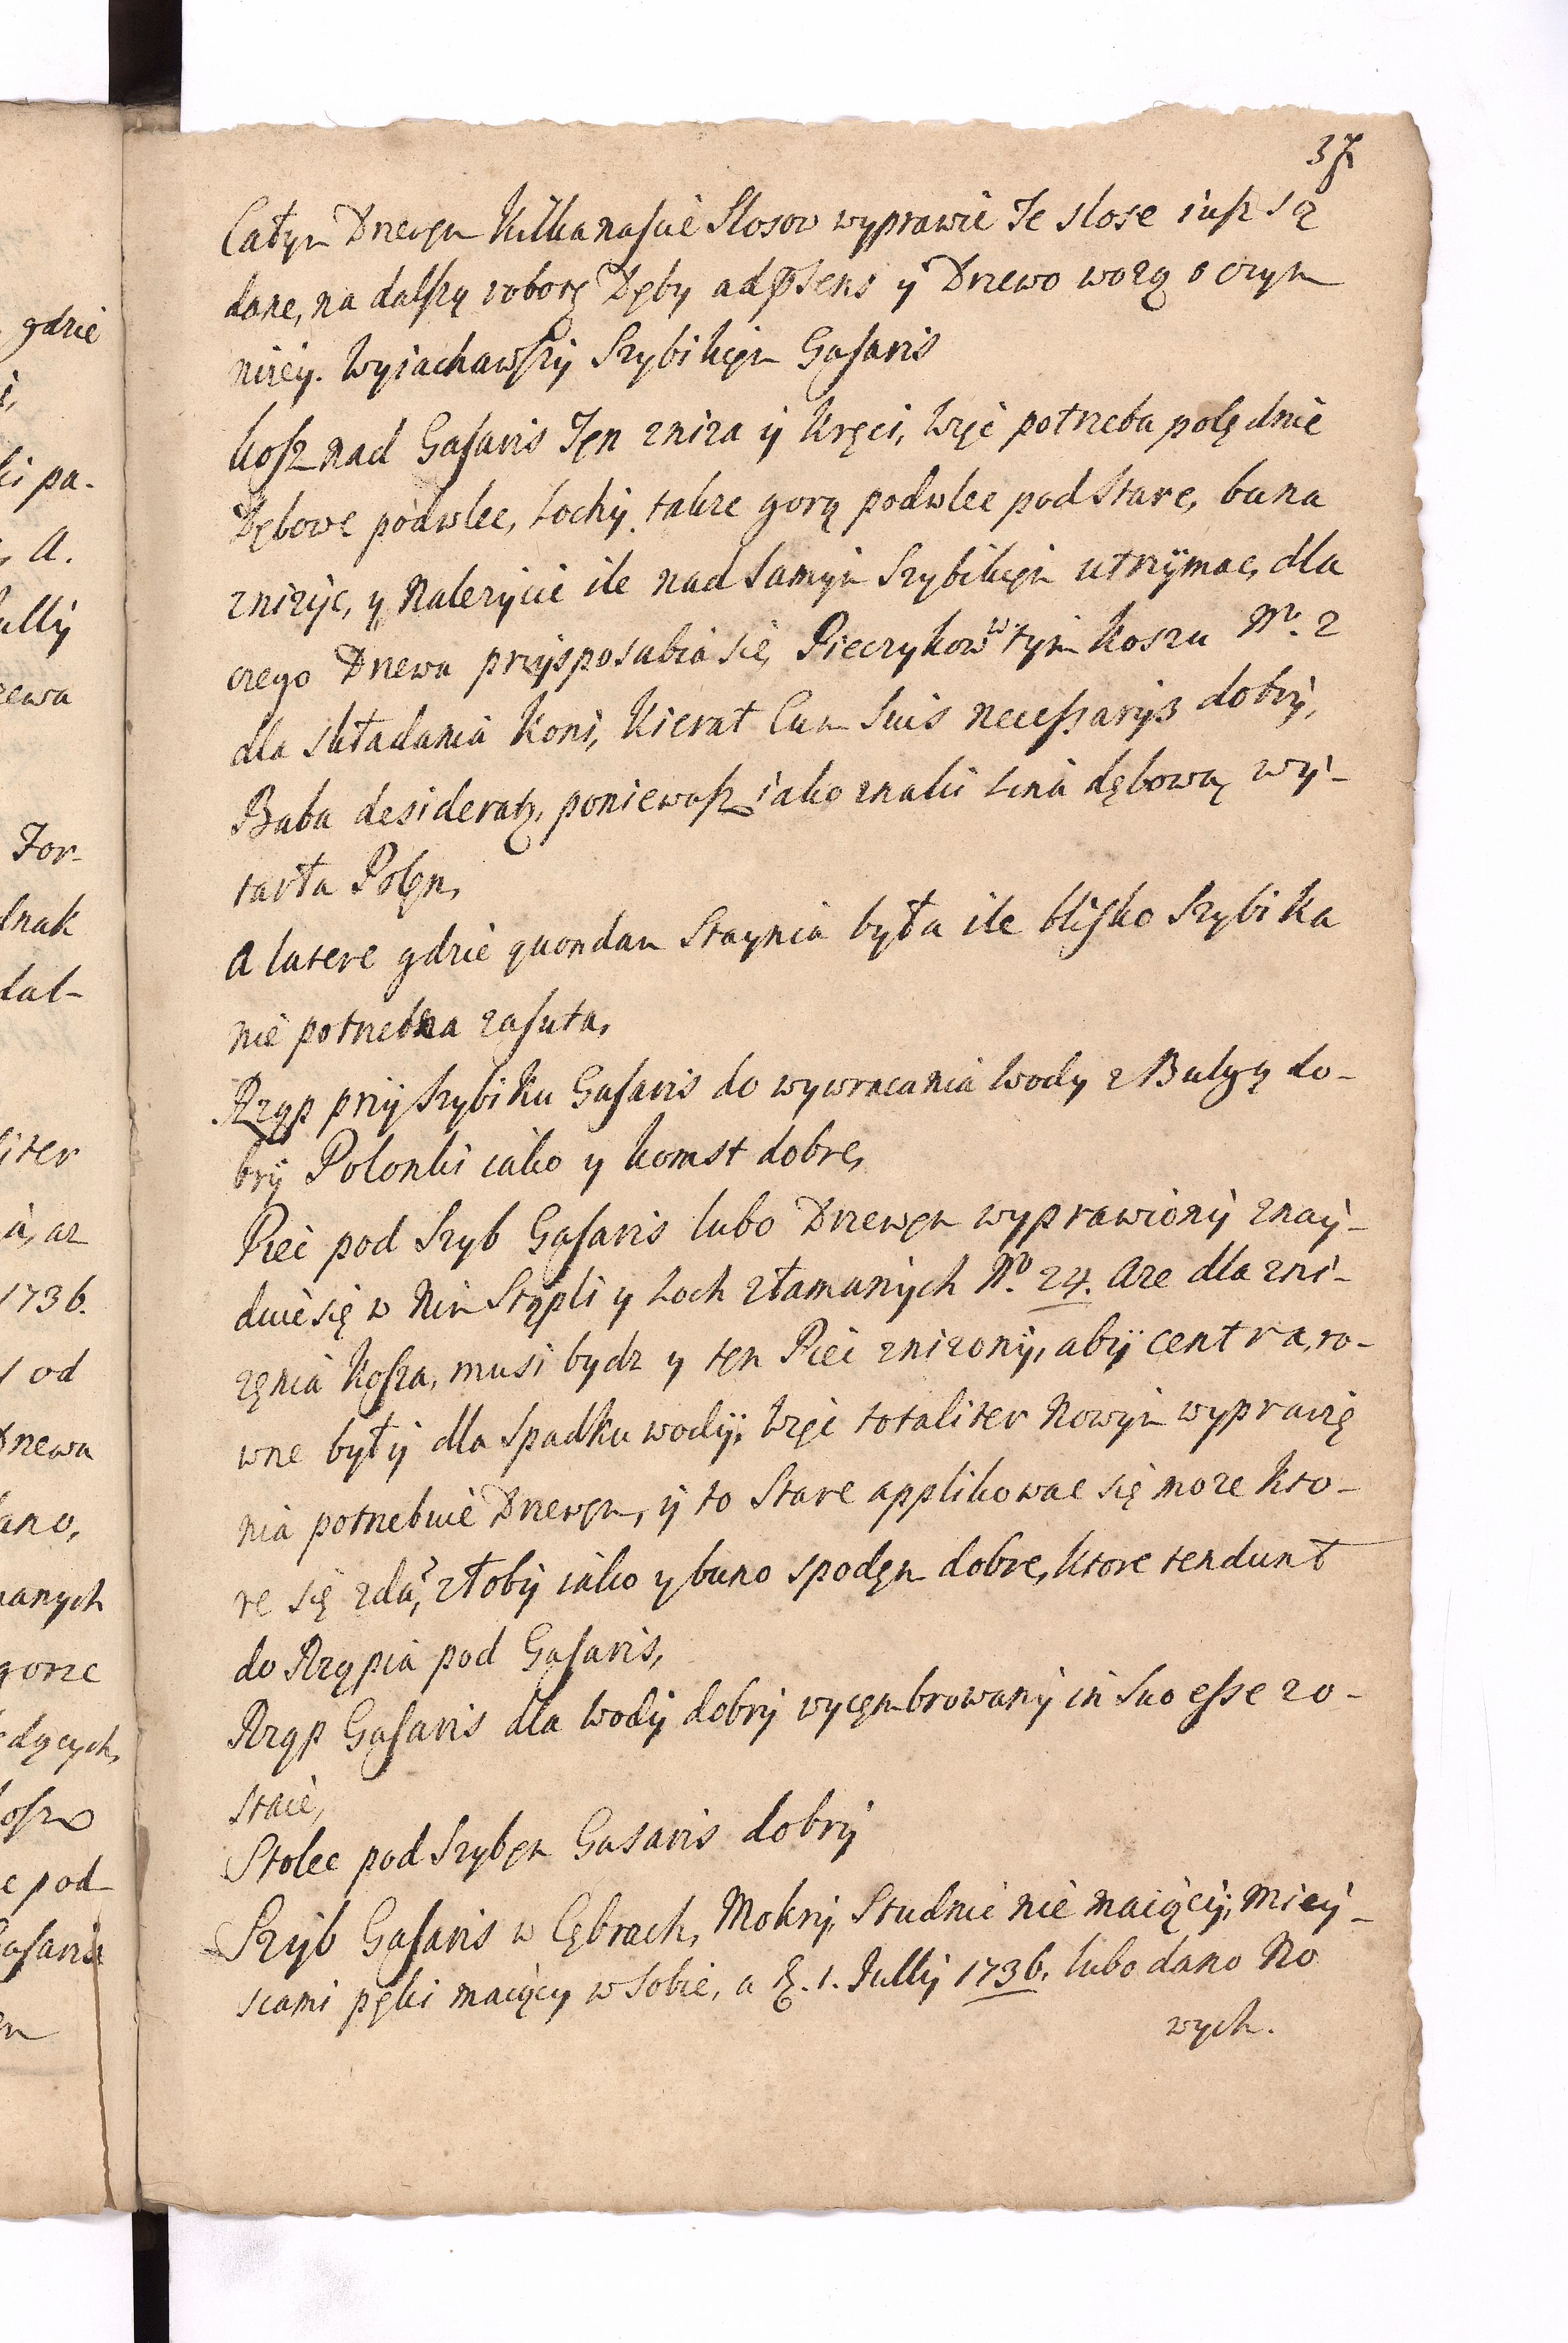 37
Całym Drzewem Kilkanascie Slosow wyprawic Te slose iusz są
dane, na dalszą roborę Dęby ad psens y Drzewo wozą o czym
nizey. Wyiachawszy Szybikiem Gasaris
Kosz nad Gasaris Ten zniza y kręci, więc potrzeba polędnie
Dębowe podwlec, Lochy takze gorą podwlec pod Stare, buna
znizyc, y Nalezycie ile nad samym Szybikiem utrzymac, dla
czego Drzewa przysposabia się, Pieczykow w tym Koszu No. 2
dla składania Koni, Kierat Cum suis necessarys dobry,
Baba desideratur, poniewasz iako znaki Lina dębową wy-
tarła Polen,
A latere gdzie quondam Staynia była ile blisko Szybika
nie potrzebna zasuta,
Rząp przy Szybiku Gasaris do wywracania Wody z Bulgą do-
bry Polonki iako y komst dobre,
Piec pod Szyb Gasaris lubo Drzewem wyprawiony znay-
duie się w Nim Stępli y Loch złamanych No. 24. Aze dla zni-
zenia Kosza, musi bydz y ten Piec znizony, aby centra, ro-
wne były dla Spadku wody, więc totaliter Nowym wyprawię
nia potrzebuie Drzewem, y to Stare applikowac się moze kto-
re się zda, złoby iako y buno spodem dobre, ktore tendunt
do Rząpia pod Gasaris,
Rząp Gasaris dla wody dobry wycembrowany in suo esse zo-
staie,
Stolec pod Szybem Gasaris dobry
Szyb Gasaris w Cębrach, Mokry, Studnie nie maiący, miey-
scami pęki maiący w sobie, a 1. July 1736. lubo dano No
wych.
gdzie
ki pa-
A.
ully
zewa
For-
dnak
dal-
liter
ia, az
1736.
y od
Drzewa
ano,
manych
gorze
edących,
kosz
c pod
Gasaris